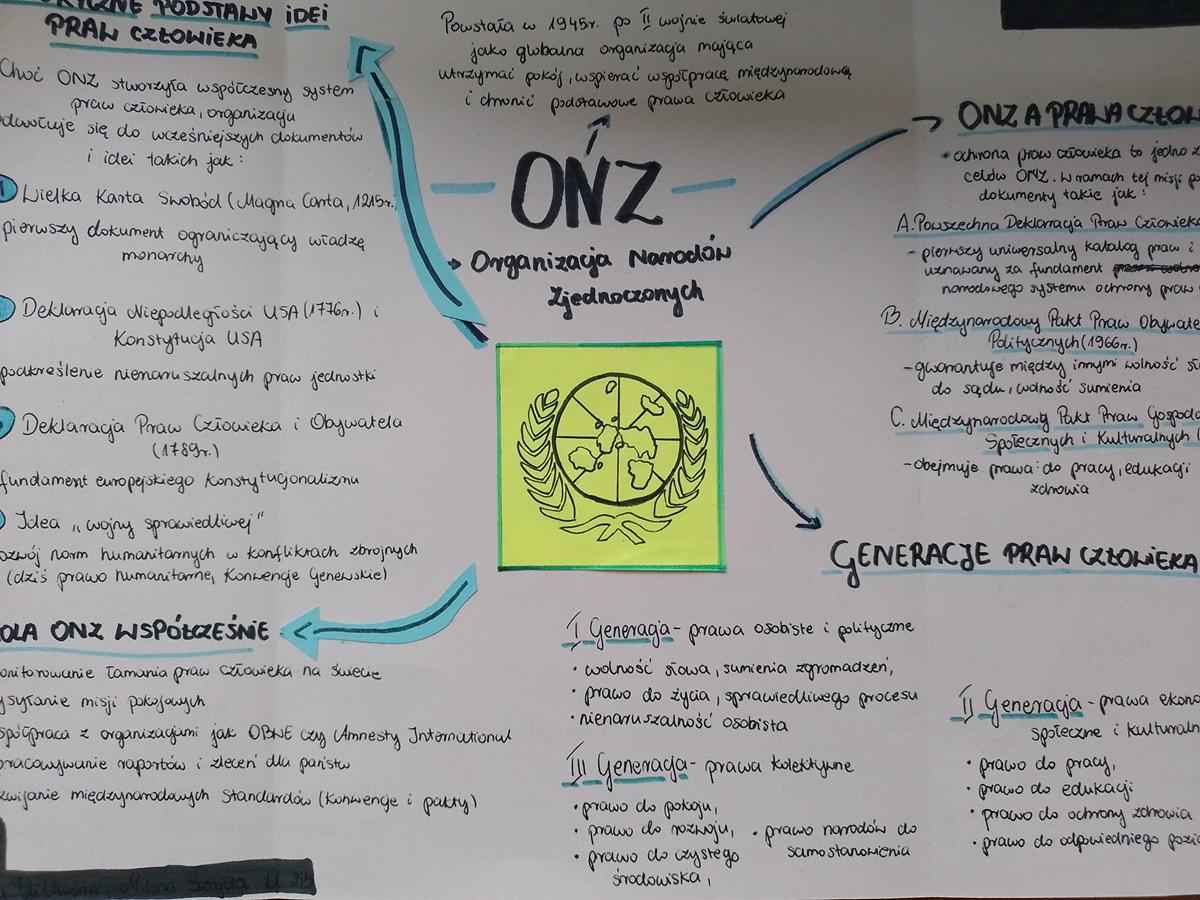 PODSTAWY IDEI
PRAW CZŁOWIEKA
Choć ONZ stworzyła współczesny system
praw człowieka, organizacja
się do wcześniejszych dokumentów
i idei takich jak:
Wielka Karta Swobód (Magna Carta, 1215r.)
pierwszy dokument ograniczający władzę
monarchy
Deklaracja Niepodległości USA (1776r.) i
Konstytucja USA
podkreślenie nienaruszalnych praw jednostki
Deklaracja Praw Człowieka i Obywatela
(1789r.)
fundament europejskiego Konstytucjonalizmu
Idea „wojny sprawiedliwej"
norm humanitarnych w konfliktach zbrojnych
(dziś prawo humanitarne, Konwencje Genewskie)
ONZ WSPÓŁCZEŚNIE
łamania praw człowieka na świecie
misji pokojowych
z organizacjami jak OBWE czy Amnesty International
raportów i zleceń dla państw
międzynarodowych standardów (konwencje i pakty)
Powstała w 1945r. po II wojnie światowej
jako globalna organizacja mająca
utrzymać pokój, wspierać współpracę międzynarodową
i chronić podstawowe prawa człowieka
ONZ
Organizacja Narodów
Zjednoczonych
ONZ A PRAWA
• ochrona praw człowieka to jedno z
celów ONZ. W ramach tej misji
dokumenty takie jak:
A. Powszechna Deklaracja Praw Człowieka
- pierwszy uniwersalny katalog praw i
uznawany za fundament
narodowego systemu ochrony praw
B. Międzynarodowy Pakt Praw
Politycznych (1966r.)
- gwarantuje między innymi wolność
do sądu, wolność sumienia
C. Międzynarodowy Pakt Praw
Społecznych i Kulturalnych
- obejmuje prawa: do pracy, edukacji
zdrowia
GENERACJE PRAW CZŁOWIEKA
I Generacja - prawa osobiste i polityczne
• wolność słowa, sumienia zgromadzeń,
• prawo do życia, sprawiedliwego procesu
• nienaruszalność osobista
II Generacja - prawa
społeczne i
• prawo do pracy,
• prawo do edukacji
• prawo do ochrony zdrowia
• prawo do odpowiedniego
III Generacja - prawa kolektywne
• prawo do pokoju,
• prawo do rozwoju,
• prawo do czystego
środowiska,
• prawo narodów do
samostanowienia